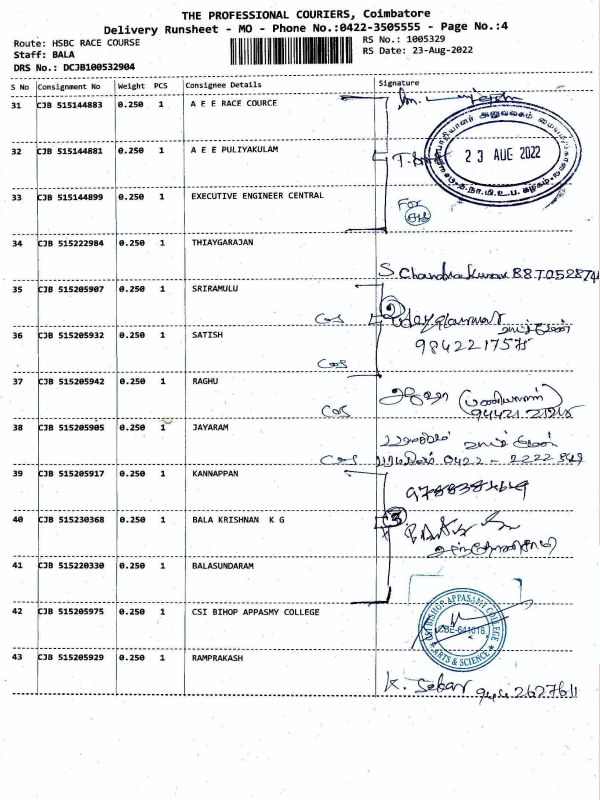 THE PROFESSIONAL COURIERS, Coimbatore
Delivery Runsheet - MO - Phone No.:0422-3505555 - Page No.:4
Route: HSBC RACE COURSE
RS No.: 1005329
Staff: BALA
RS Date: 23-Aug-2022
DRS No.: DCJB100532904
S No Consignment No Weight PCS Consignee Details Signature
31 CJB 515144883 0.250 1 A E E RACE COURCE
32 CJB 515144881 0.250 1 A E E PULIYAKULAM
23 AUG 2022
33 CJB 515144899 0.250 1 EXECUTIVE ENGINEER CENTRAL
For
34 CJB 515222984 0.250 1 THIAYGARAJAN
S. Chandra
35 CJB 515205907 0.250 1 SRIRAMULU
36 CJB 515205932 0.250 1 SATISH
37 CJB 515205942 0.250 1 RAGHU
38 CJB 515205905 0.250 1 JAYARAM
0422 - 2222
39 CJB 515205917 0.250 1 KANNAPPAN
40 CJB 515230368 0.250 1 BALA KRISHNAN K G
41 CJB 515220330 0.250 1 BALASUNDARAM
42 CJB 515205975 0.250 1 CSI BIHOP APPASMY COLLEGE
CSI BISHOP APPASAMY COLLEGE
CBE-641018.
ARTS & SCIENCE
43 CJB 515205929 0.250 1 RAMPRAKASH
K. Sekar